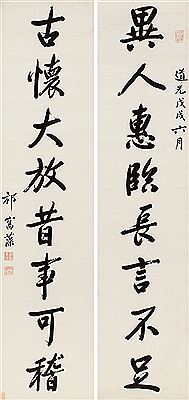 異人惠臨長言不足
道光戊戌六月
古懷大放昔事可稽
祁寯藻